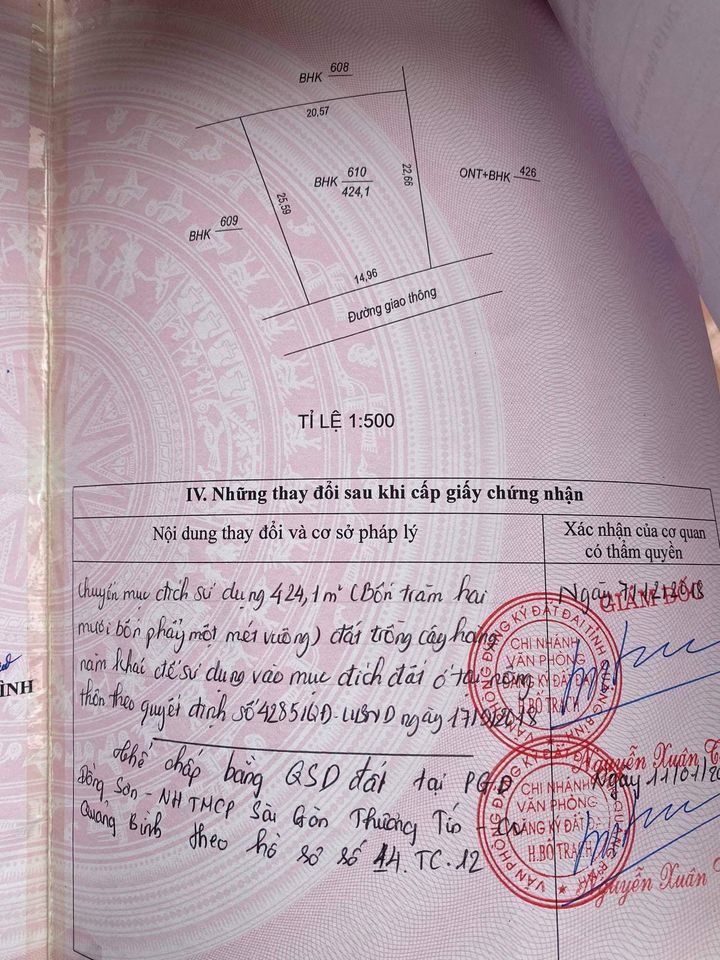 BHK 608
20,57
BHK 610
424,1
22,66
ONT+BHK 426
25,59
BHK 609
14,96
Đường giao thông
TỈ LỆ 1:500
IV. Những thay đổi sau khi cấp giấy chứng nhận
Nội dung thay đổi và cơ sở pháp lý
Xác nhận của cơ quan
có thẩm quyền
Chuyển mục đích sử dụng 424,1 m² (Bốn trăm hai
mươi bốn phẩy một mét vuông) đất trồng cây hàng
năm khác để sử dụng vào mục đích đất ở tại nông
thôn theo quyết định số 4285/QĐ-UBND ngày
Thế chấp bằng QSD đất tại PGD
Đồng Sơn - NH TMCP Sài Gòn Thương Tín - CN
Quảng Bình theo hồ sơ số 14.TC.12
Ngày 7/12/2018
GIÁM ĐỐC
VĂN PHÒNG ĐĂNG KÝ ĐẤT ĐAI TỈNH QUẢNG BÌNH
CHI NHÁNH
VĂN PHÒNG
ĐĂNG KÝ ĐẤT ĐAI
H.BỐ TRẠCH
Nguyễn Xuân
Ngày 11/01/20
CHI NHÁNH
VĂN PHÒNG
ĐĂNG KÝ ĐẤT
H.BỐ TRẠCH
Nguyễn Xuân
ÌNH